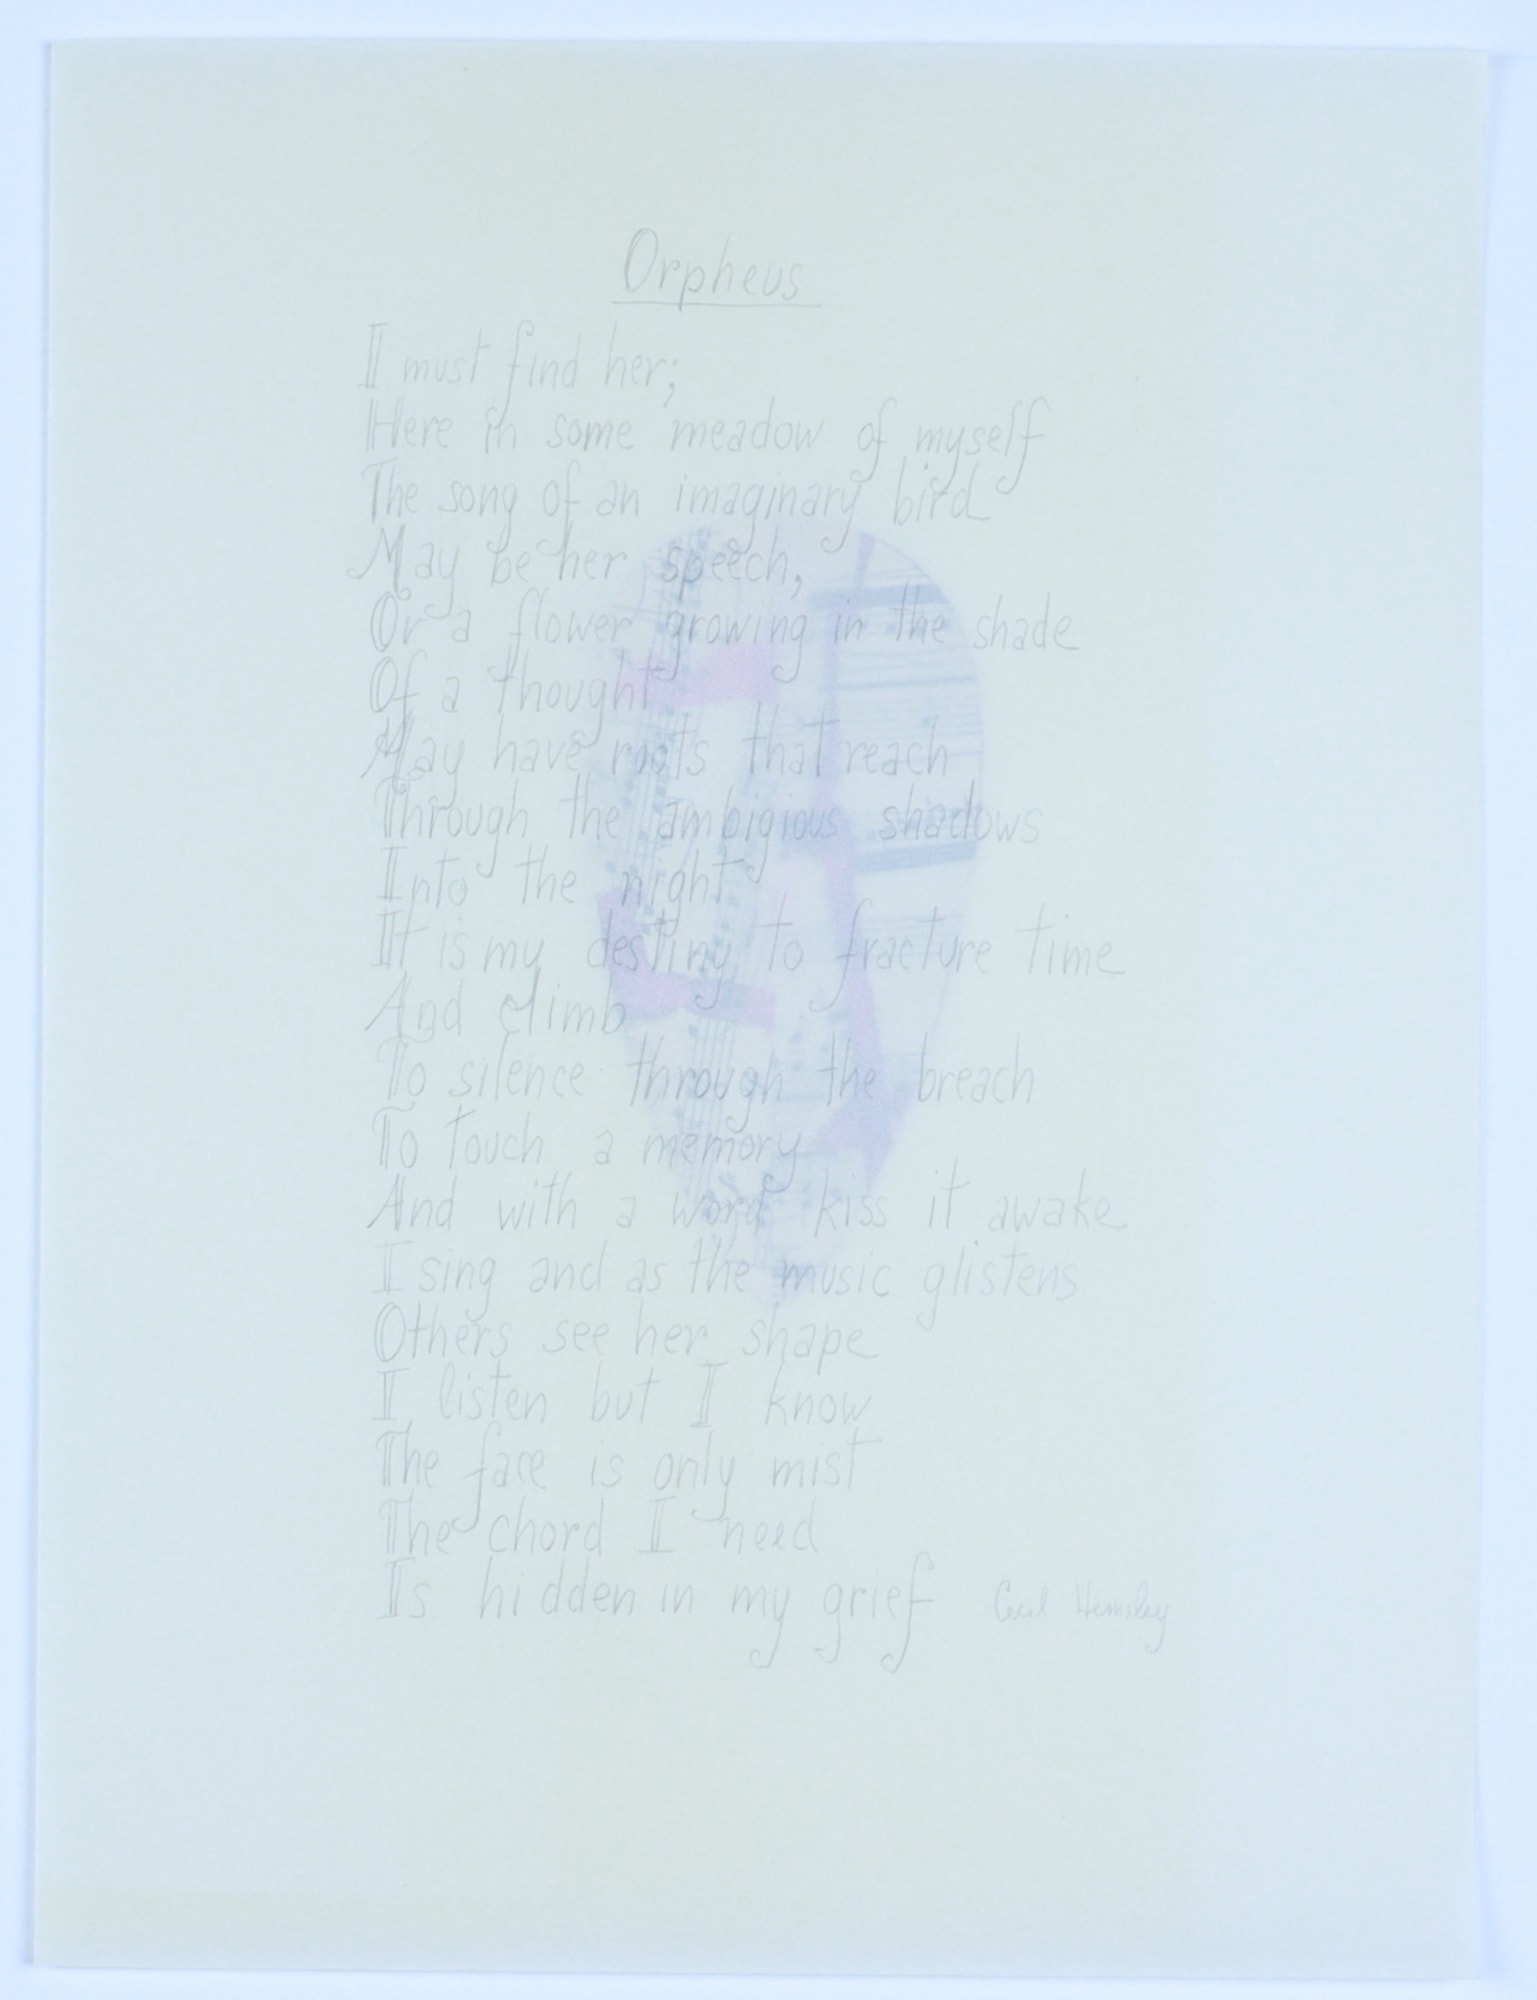 Orpheus
I must find her;
Here in some meadow of myself
The song of an imaginary bird
May be her speech,
Or a flower growing in the shade
Of a thought
May have roots that reach
Through the ambigious shadows
Into the night
It is my destiny to fracture time
And climb
To silence through the breach
To touch a memory
And with a word kiss it awake
I sing and as the music glistens
Others see her shape
I listen but I know
The face is only mist
The chord I need
Is hidden in my grief Cecil Hemsley